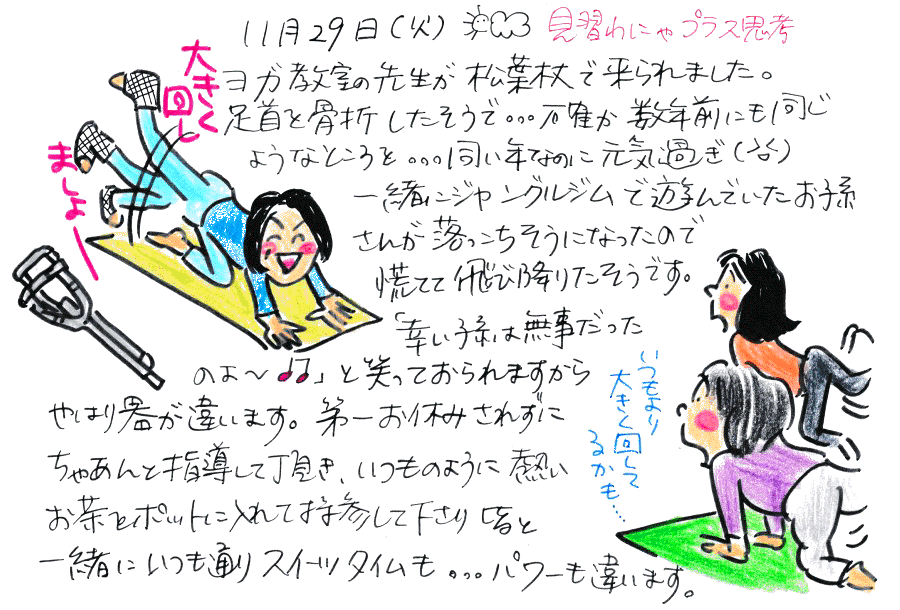 11月29日(火) 見習わにゃプラス思考
ヨガ教室の先生が松葉杖で来られました。
足首を骨折したそうで…確か数年前にも同じ
ようなところを…同い年なのに元気過ぎ(谷)
一緒にジャングルジムで遊んでいたお孫
さんが落っこちそうになったので
慌てて飛び降りたそうです。
「幸い孫は無事だった
のよ〜♪♫」と笑っておられますから
やはり器が違います。第一お休みされずに
ちゃあんと指導して頂き、いつものように熱い
お茶をポットに入れて持参して下さり皆と
一緒にいつも通りスイーツタイムも…パワーも違います。
大きく
回し
ましょー
いつもより
大きく回して
るかも…